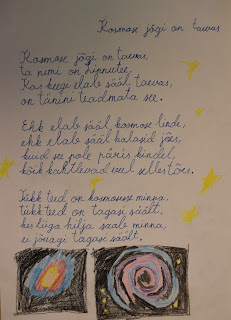 Kosmose jõgi on taevas
Kosmose jõgi on taevas,
ta nimi on Linnutee.
Kas keegi elab sääl taevas,
on tänini teadmata see.
Ehk elab sääl kosmose linde,
ehk elab sääl kalasid jões,
kuid see pole päris kindel,
kõik kahtlevad veel selles tões.
Tükk teed on kosmosesse minna,
tükk teed on tagasi säält.
kes liiga hilja saab minna,
ei jõuagi tagasi säält.